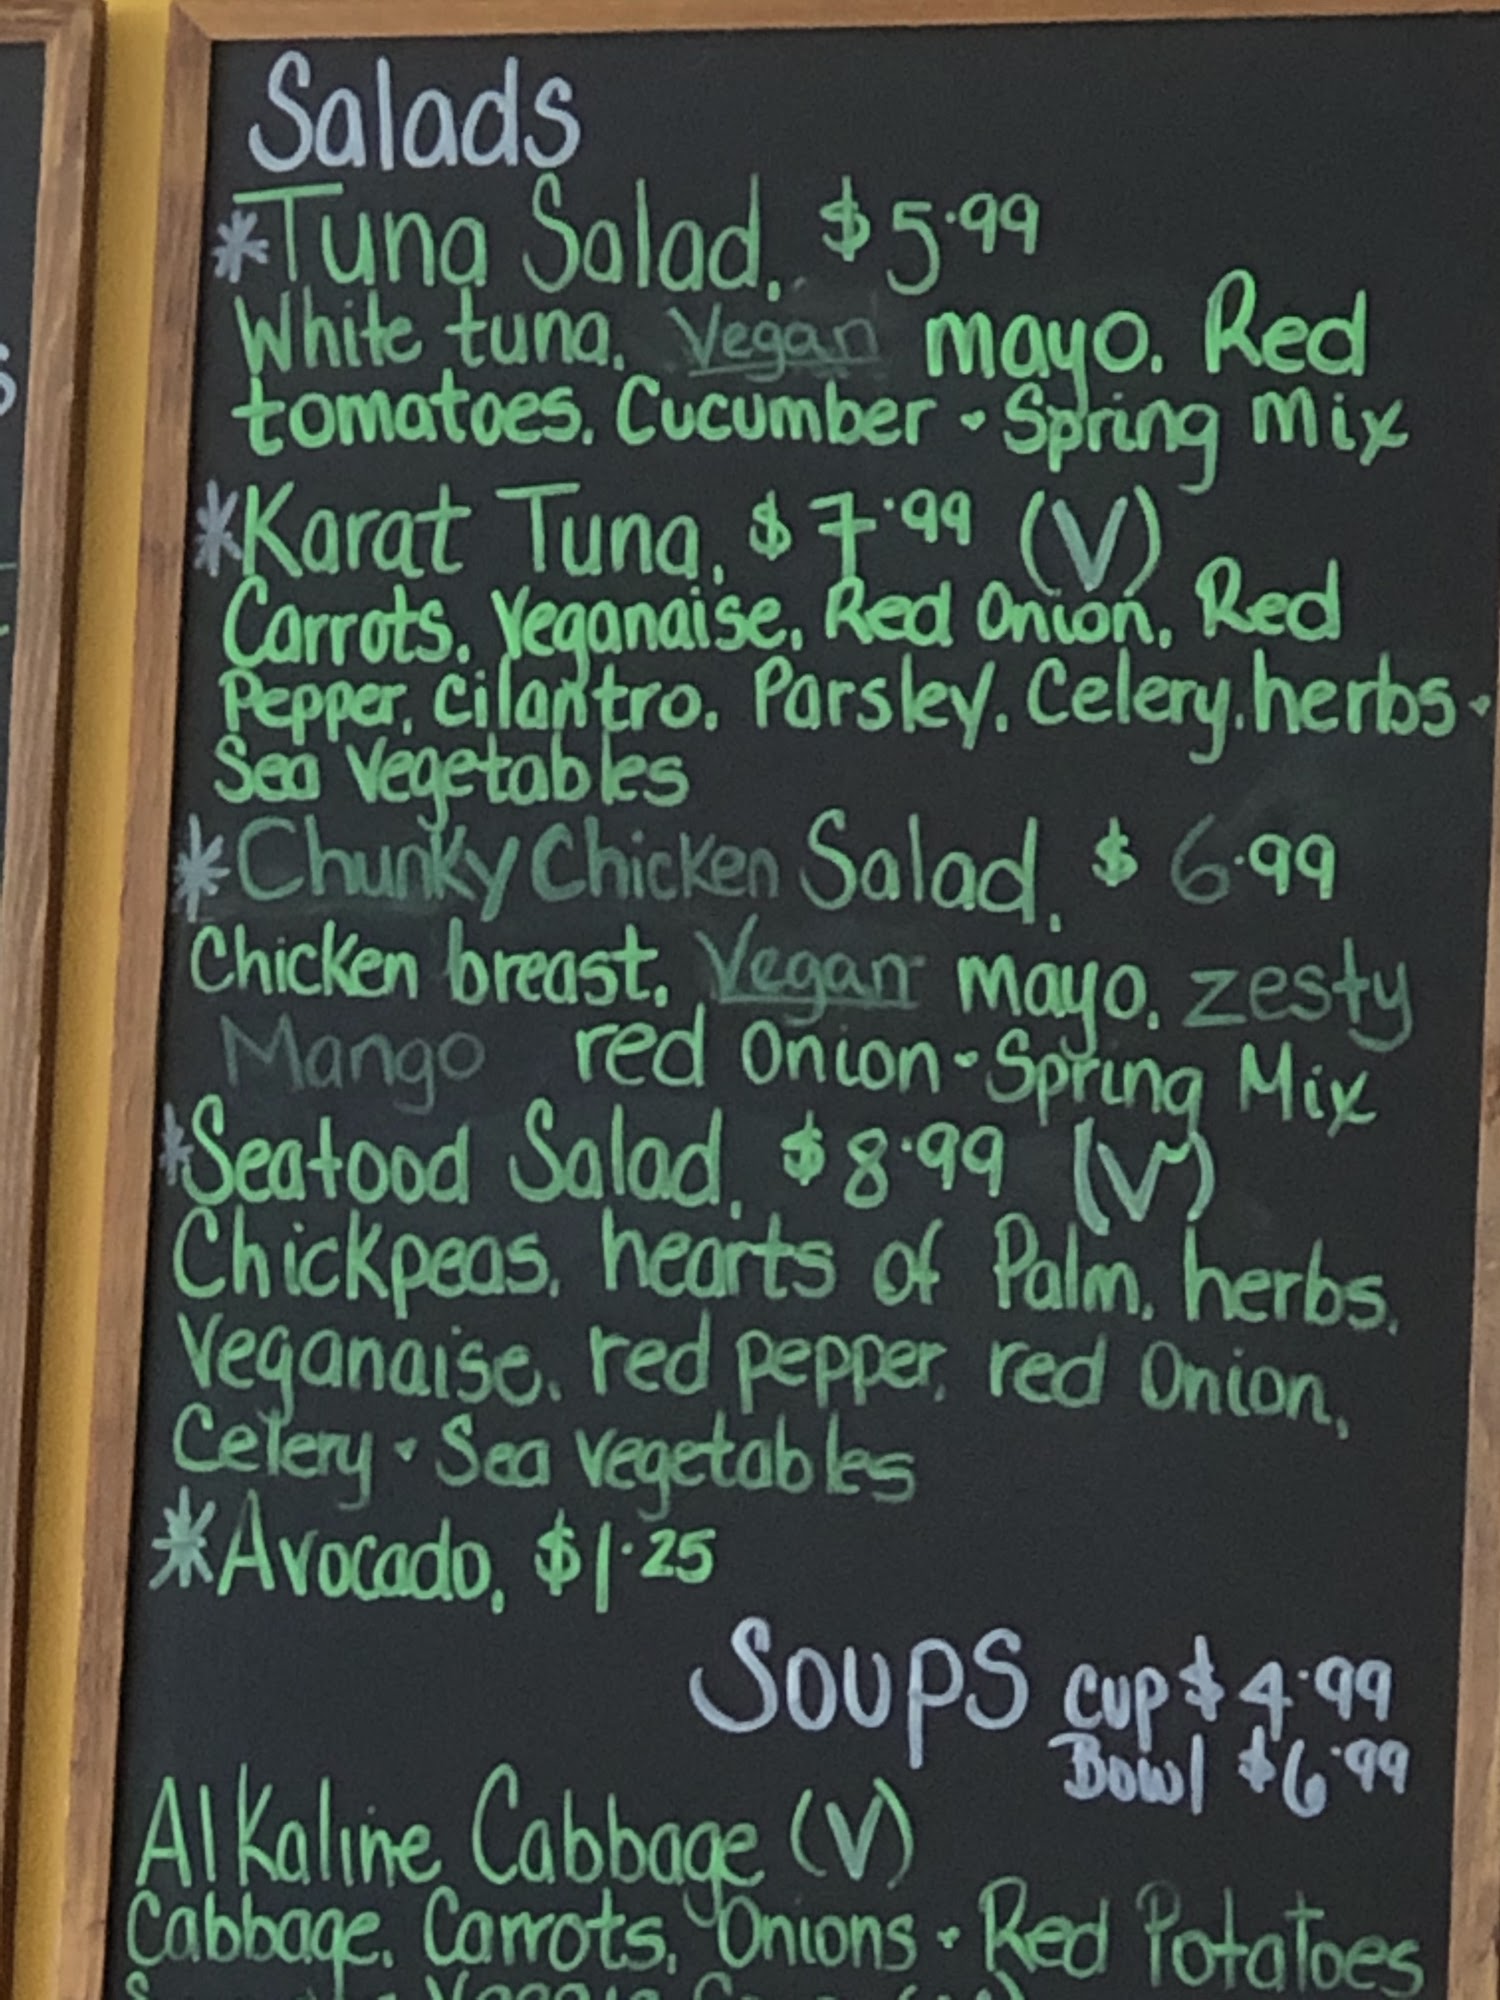 Salads
*Tuna Salad, $5.99
White tuna, Vegan mayo, Red
tomatoes, Cucumber • Spring Mix
*Karat Tuna, $7.99 (V)
Carrots, Veganaise, Red Onion, Red
Pepper, Cilantro, Parsley, Celery, herbs •
Sea Vegetables
*Chunky Chicken Salad, $6.99
Chicken breast, Vegan mayo, zesty
Mango red Onion • Spring Mix
*Seafood Salad, $8.99 (V)
Chickpeas, hearts of Palm, herbs,
Veganaise, red pepper, red Onion,
Celery • Sea Vegetables
*Avocado, $1.25
Soups Cup $4.99
Bowl $6.99
Alkaline Cabbage (V)
Cabbage, Carrots, Onions • Red Potatoes